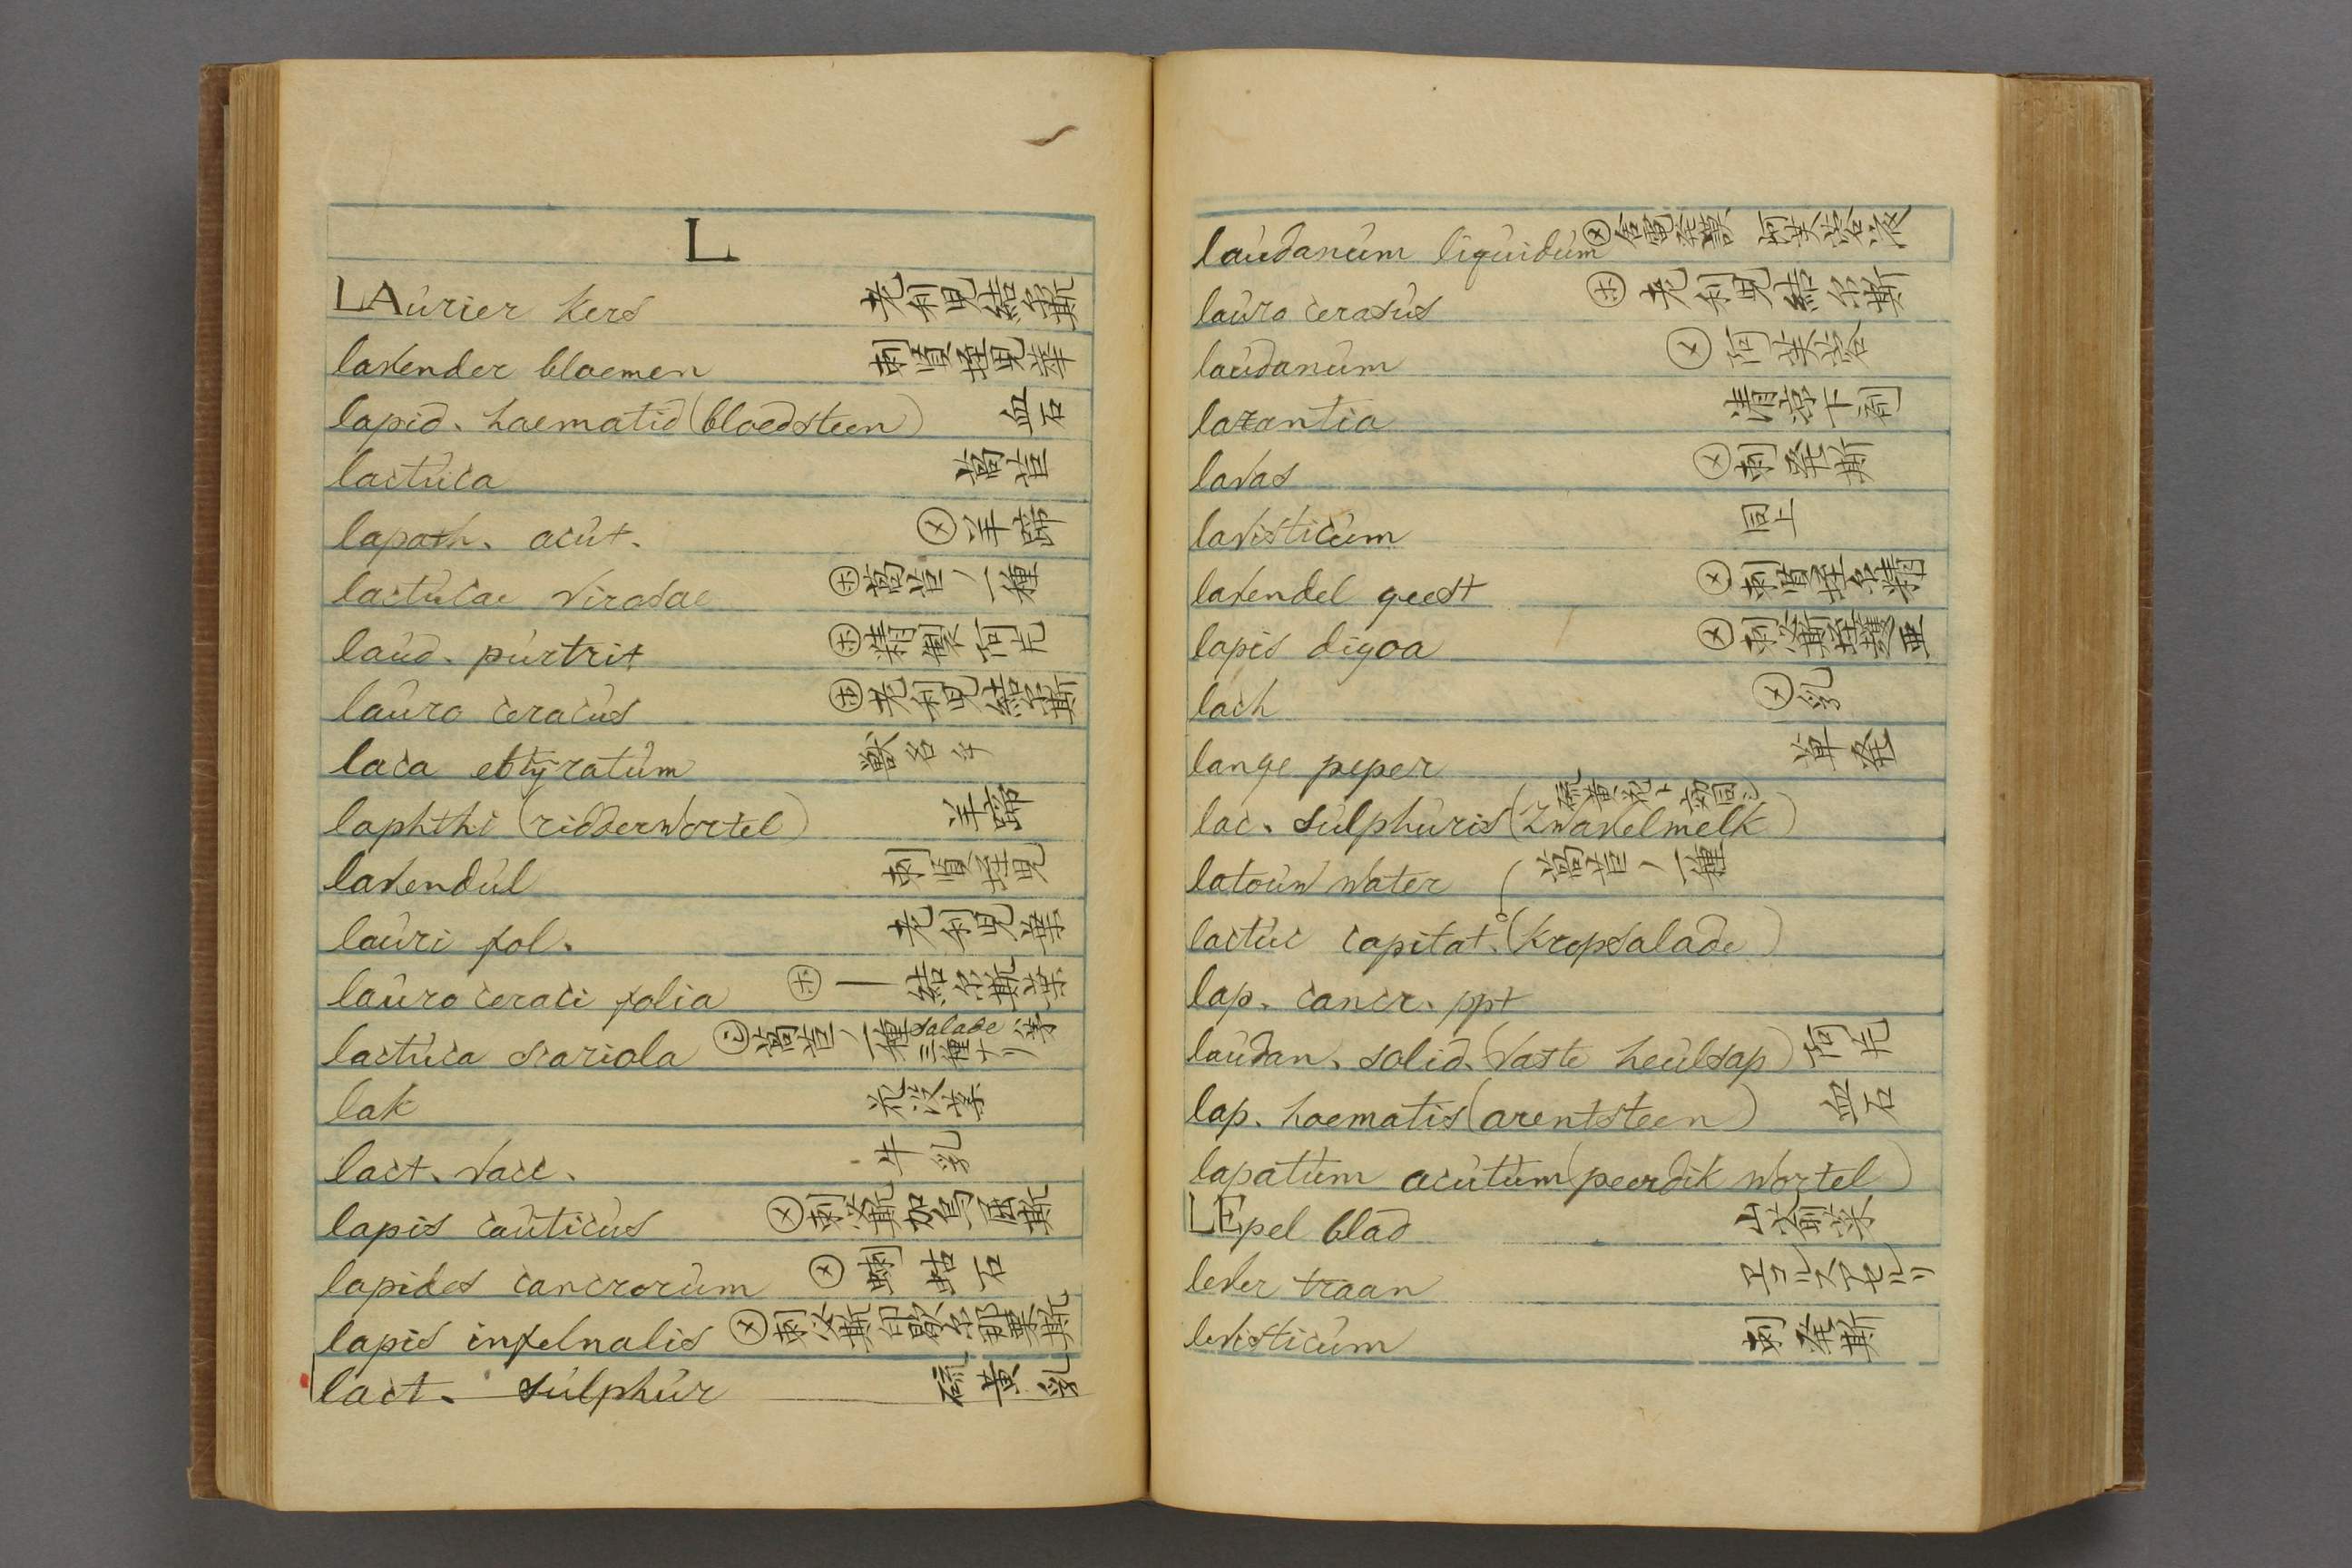 L
LAurier kers 老利児結尓斯
lavender bloemen 刺賢埀児華
lapid. haematid (bloedsteen) 血石
lactuca 萵苣
lapath. acut. ㋨羊蹄
lactucae virosae ㋭萵苣ノ一種
laud. purtrit ㋭精製阿片
lauro ceracus ㋭老利児結尓斯
laca ebtyratum 獣名
laphthi (ridderwortel) 羊蹄
lavendul 刺賢埀児
lauri fol. 老利児葉
lauro ceraci folia ㋭ー結尓斯葉
lactuca scariola 萵苣ノ一種 salade
lak 花没薬
lact. vacc. 牛乳
lapis cauticus ㋨刺必斯加烏私斯
lapides cancrorum ㋨蜊蛄石
lapis infelnalis
lact. sulphur 硫黄乳
laudanum liquidum
lauro cerasus ㋭老利児結尓斯
laudanum ㋨阿芙蓉
laxantia 清凉下剤
lavas ㋨刺発斯
lavisticum 同上
lavendel geest ㋨刺賢埀尓精
lapis digoa
lach ㋨乳
lange peper 蓽発
lac. sulphuris (zwavelmelk) 硫黄花ト効同シ
latouw water
lactuc capitat. (kropsalade) 萵苣ノ一種
lap. cancr. ppt
laudan. solid. (vaste heulsap) 阿片
lap. haematis (arentsteen) 血石
lapatum acutum (peerdik wortel)
LEpel blad
lever traan
levisticum 刺発斯